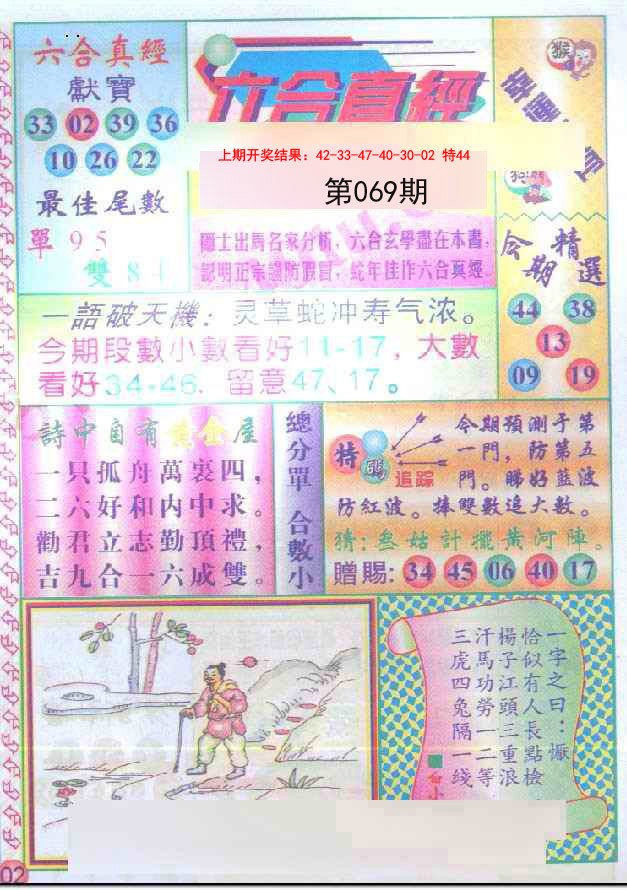 六合真經
獻寶
33 02 39 36
10 26 22
最佳尾數
單 9 5
雙 8 4
六合真經
上期开奖结果：42-33-47-40-30-02 特44
第069期
猴
士出馬名家分析，六合玄學盡在本書，
認明正宗謹防假冒，蛇年佳作六合真經
今期
精選
44 38
13
09 19
一語破天機：灵草蛇冲寿气浓。
今期段數小數看好11-17，大數
看好34-46. 留意47、17。
詩中自有黄金屋
一只孤舟萬裏四，
二六好和内中求。
勸君立志勤頂禮，
吉九合一六成雙。
總分單 合數小
特碼
追踪
今期預測于第
一門，防第五
門。睇好藍波
防紅波。捧雙數追大數。
猜：叁姑計擺黃河陣。
贈賜: 34 45 06 40 17
一字之曰：慚
恰似有人長點檢
楊子江頭三重浪
汗馬功勞一二等
三虎四兔隔一线
小
02